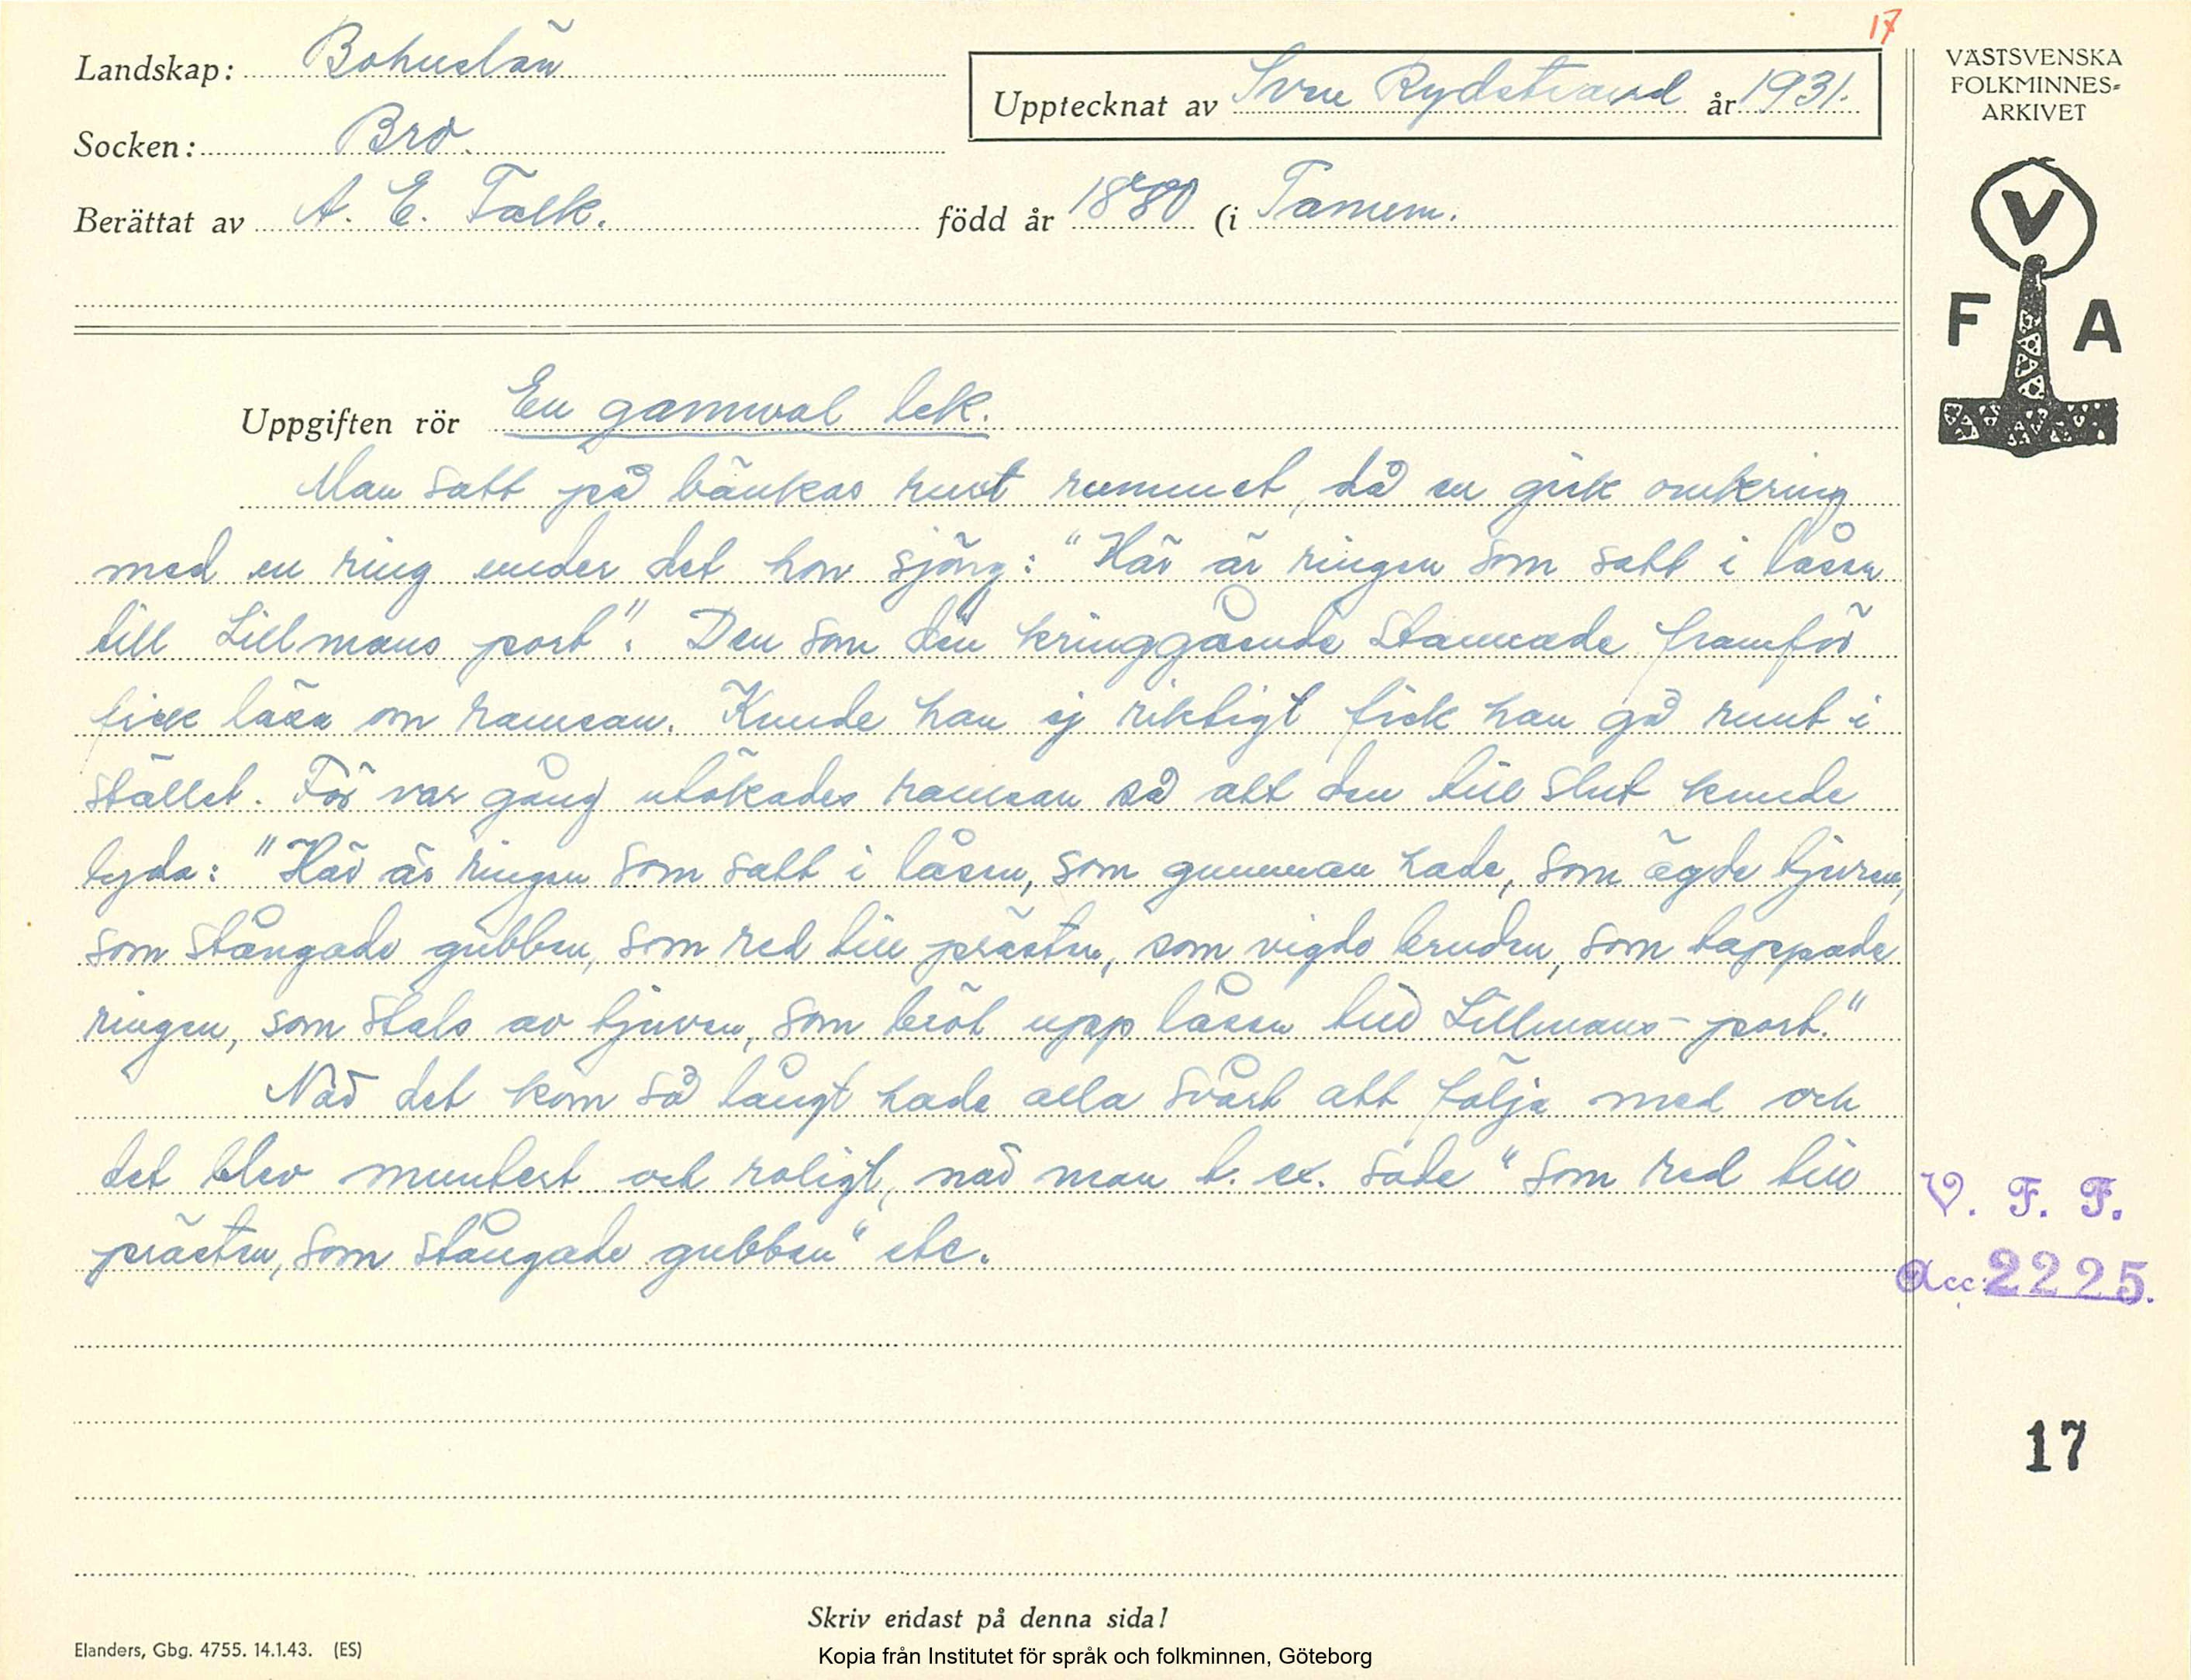 17
Landskap: Bohuslän
Upptecknat av Sven Rydstrand år 1931.
Socken: Bro.
Berättat av A. E. Falk. född år 1880 (i Tanum.
VÄSTSVENSKA
FOLKMINNES-
ARKIVET
V
F A
Uppgiften rör En gammal lek.
Man satt på bänkar runt rummet, då en gick omkring
med en ring under det hon sjöng: "Här är ringen som satt i låsen
till Lillmans port". Den som den kringgående stannade framför
fick läsa om ramsan. Kunde han ej riktigt fick han gå runt i
stället. För var gång utökades ramsan så att den till slut kunde
lyda: "Här är ringen som satt i låsen, som gumman hade, som ägde tjuren,
som stångade gubben, som red till prästen, som vigde bruden, som tappade
ringen, som stals av tjuven, som bröt upp låsen till Lillmans-port."
När det kom så långt hade alla svårt att följa med och
det blev muntert och roligt, när man t. ex. sade "som red till
prästen, som stångade gubben" etc.
V. F. F.
Acc: 2225.
17
Skriv endast på denna sida!
Elanders, Gbg. 4755. 14.1.43. (ES)
Kopia från Institutet för språk och folkminnen, Göteborg